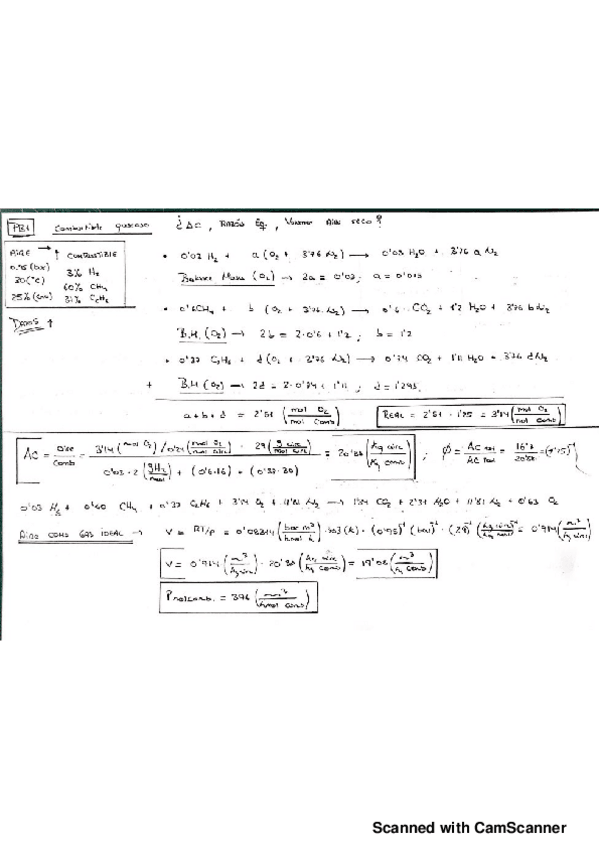 PB1 Combustible gaseoso ¿AC, Razón Eq., Volumen Aire seco?
AIRE → ↑ COMBUSTIBLE
0.95 (bar) 3% H2
30 (°C) 60% CH4
25% (exc) 37% C2H6
DATOS ↑
• 0'03 H2 + a (O2 + 3'76 N2) → 0'03 H2O + 3'76 a N2
Balance Masa (O2) → 2a = 0'03; a = 0'015
• 0'6 CH4 + b (O2 + 3'76 N2) → 0'6 CO2 + 1'2 H2O + 3'76 b N2
B.M. (O2) → 2b = 2·0'6 + 1'2; b = 1'2
+ 0'37 C2H6 + d (O2 + 3'76 N2) → 0'74 CO2 + 1'11 H2O + 3'76 d N2
+ B.M (O2) → 2d = 2·0'74 + 1'11; d = 1'295
a + b + d = 2'51 (mol O2 / mol comb) REAL = 2'51 · 1'25 = 3'14 (mol O2 / mol comb)
AC = aire/comb = 3'14 (mol O2) / 0'21 (mol O2 / mol aire) · 29 (g aire / mol aire) / 0'03·2 (gH2 / mol) + (0'6·16) + (0'37·30) = 20'88 (kg aire / kg comb); Ø = AC / AC = 16'7 / 20'88
0'03 H2 + 0'60 CH4 + 0'37 C2H6 + 3'14 O2 + 11'81 N2 → 1'34 CO2 + 2'34 H2O + 11'81 N2 + 0'63 O2
Aire como GAS IDEAL → V = RT/P = 0'08314 (bar m³ / kmol k) · 303 (k) · (0'95)⁻¹ (bar)⁻¹ · (29)⁻¹ = 0'914 (m³ / kg aire)
V = 0'914 (m³ / kg aire) · 20'88 (kg aire / kg comb) = 19'08 (m³ / kg comb)
= 396 (m³ / kmol comb)
Scanned with CamScanner